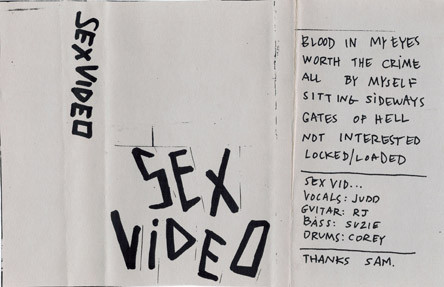 SEX VIDEO
SEX
VIDEO
BLOOD IN MY EYES
WORTH THE CRIME
ALL BY MYSELF
SITTING SIDEWAYS
GATES OF HELL
NOT INTERESTED
LOCKED/LOADED
SEX VID...
VOCALS: JUDD
GUITAR: RJ
BASS: SUZIE
DRUMS: COREY
THANKS SAM.